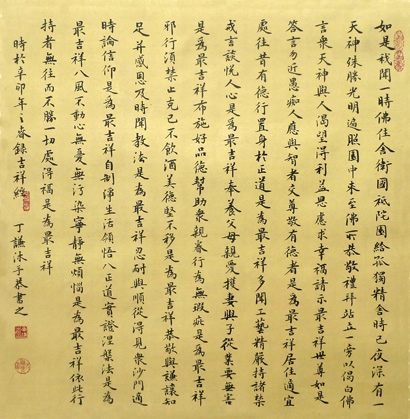 如是我聞一時佛住舍衛國祇陀園給孤獨精舍時已夜深有一
天神殊勝光明遍照園中來至佛所恭敬禮拜站立一旁以偈白佛
言眾天神與人渴望得利益思慮求幸福請示最吉祥世尊如是
答言勿近愚癡人應與智者交尊敬有德者是為最吉祥居住適宜
處往昔有德行置身於正道是為最吉祥多聞工藝精嚴持諸禁
戒言談悅人心是為最吉祥奉養父母親愛護妻與子從業要無害
是為最吉祥布施好品德幫助眾親眷行為無瑕疵是為最吉祥
邪行須禁止克己不飲酒美德堅不移是為最吉祥恭敬與謙讓知
足并感恩及時聞教法是為最吉祥忍耐與順從得見眾沙門適
時論信仰是為最吉祥自制淨生活領悟八正道實證涅槃法是為
最吉祥八風不動心無憂無污染寧靜無煩惱是為最吉祥依此行
持者無往而不勝一切處得福是為最吉祥
時於辛卯年之春錄吉祥經 丁謙沐手恭書之